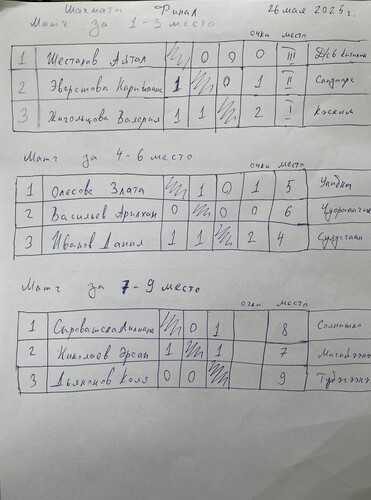 Шахматы Финал 26 мая 2025 г.
Матч за 1-3 место
очки место
1 Шесталов Айтал 0 0 0 III
2 Эверстова Карина 1 0 1 II
3 Жигольцова Валерия 1 1 2 I
Матч за 4-6 место
очки место
1 Олесова Злата 1 0 1 5 Улыбка
2 Васильев Арылхан 0 0 0 6
3 Иванов Данил 1 1 2 4
Матч за 7-9 место
очки место
1 0 1 8 Солнышко
2 Николаев Эрсан 1 1 7
3 Дьяконов Коля 0 0 9